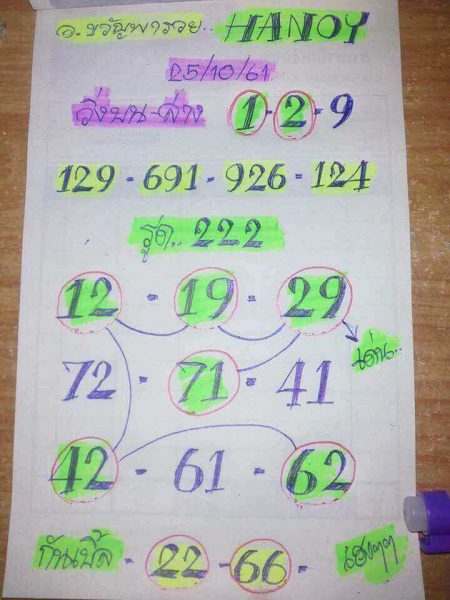 อ.ขวัญพารวย.. HANOY
25/10/61
วิ่งบน-ล่าง 1-2-9
129-691-926-124
รูด.. 222
12-19-29
เด่น..
72-71-41
42-61-62
กันเบิ้ล-22-66- เฮงๆๆ